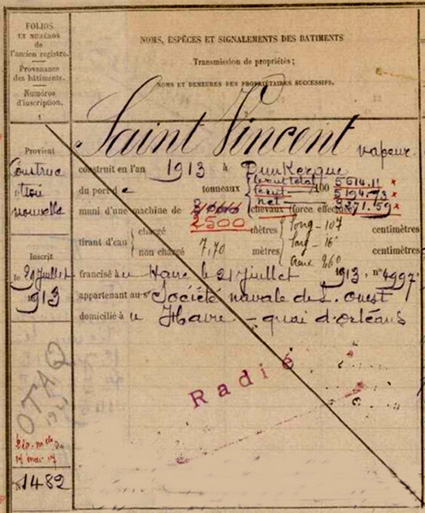 FOLIOS
ET NUMÉROS
de
l'ancien registre.
Provenance
des bâtiments.
Numéros
d'inscription.
1
NOMS, ESPÈCES ET SIGNALEMENTS DES BATIMENTS
Transmission de propriétés;
NOMS ET DEMEURES DES PROPRIÉTAIRES SUCCESSIFS.
Saint Vincent vapeur
Provient
Construc
tion
nouvelle
construit en l'an 1913 à Dunkerque
brut total 5614.11 x
du port de tonneaux brut 100 5194.73 x
net 3271.59 x
muni d'une machine de chevaux (force effective)
2500
tirant d'eau
chargé mètres centimètres
non chargé 7,70 mètres centimètres
long - 107
larg - 16
creux 860
Inscrit
le 21 juillet
1913
francisé au Havre le 21 juillet 1913, n° 4997
appartenant au Société navale de l'ouest
domicilié à u Havre - quai d'orléans
Radié
OTAQ
N° 1482